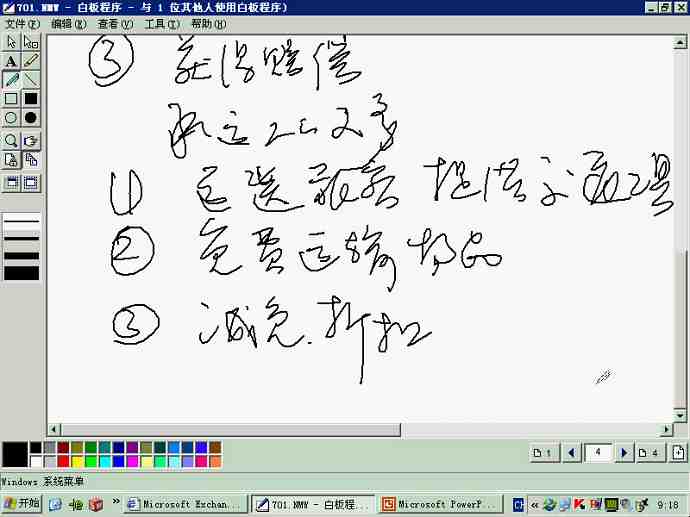 701.NMW - 白板程序 - 与 1 位其他人使用白板程序)
文件(F) 编辑(E) 查看(V) 工具(T) 帮助(H)
③ 获得赔偿
承运人义务
① 运送旅客 提供交通工具
② 免费运输物品
③ 减免.折扣
A
1 4 4
Windows 系统菜单
开始 Microsoft Exchan... 701.NMW - 白板程... Microsoft PowerP... CH « 9:18